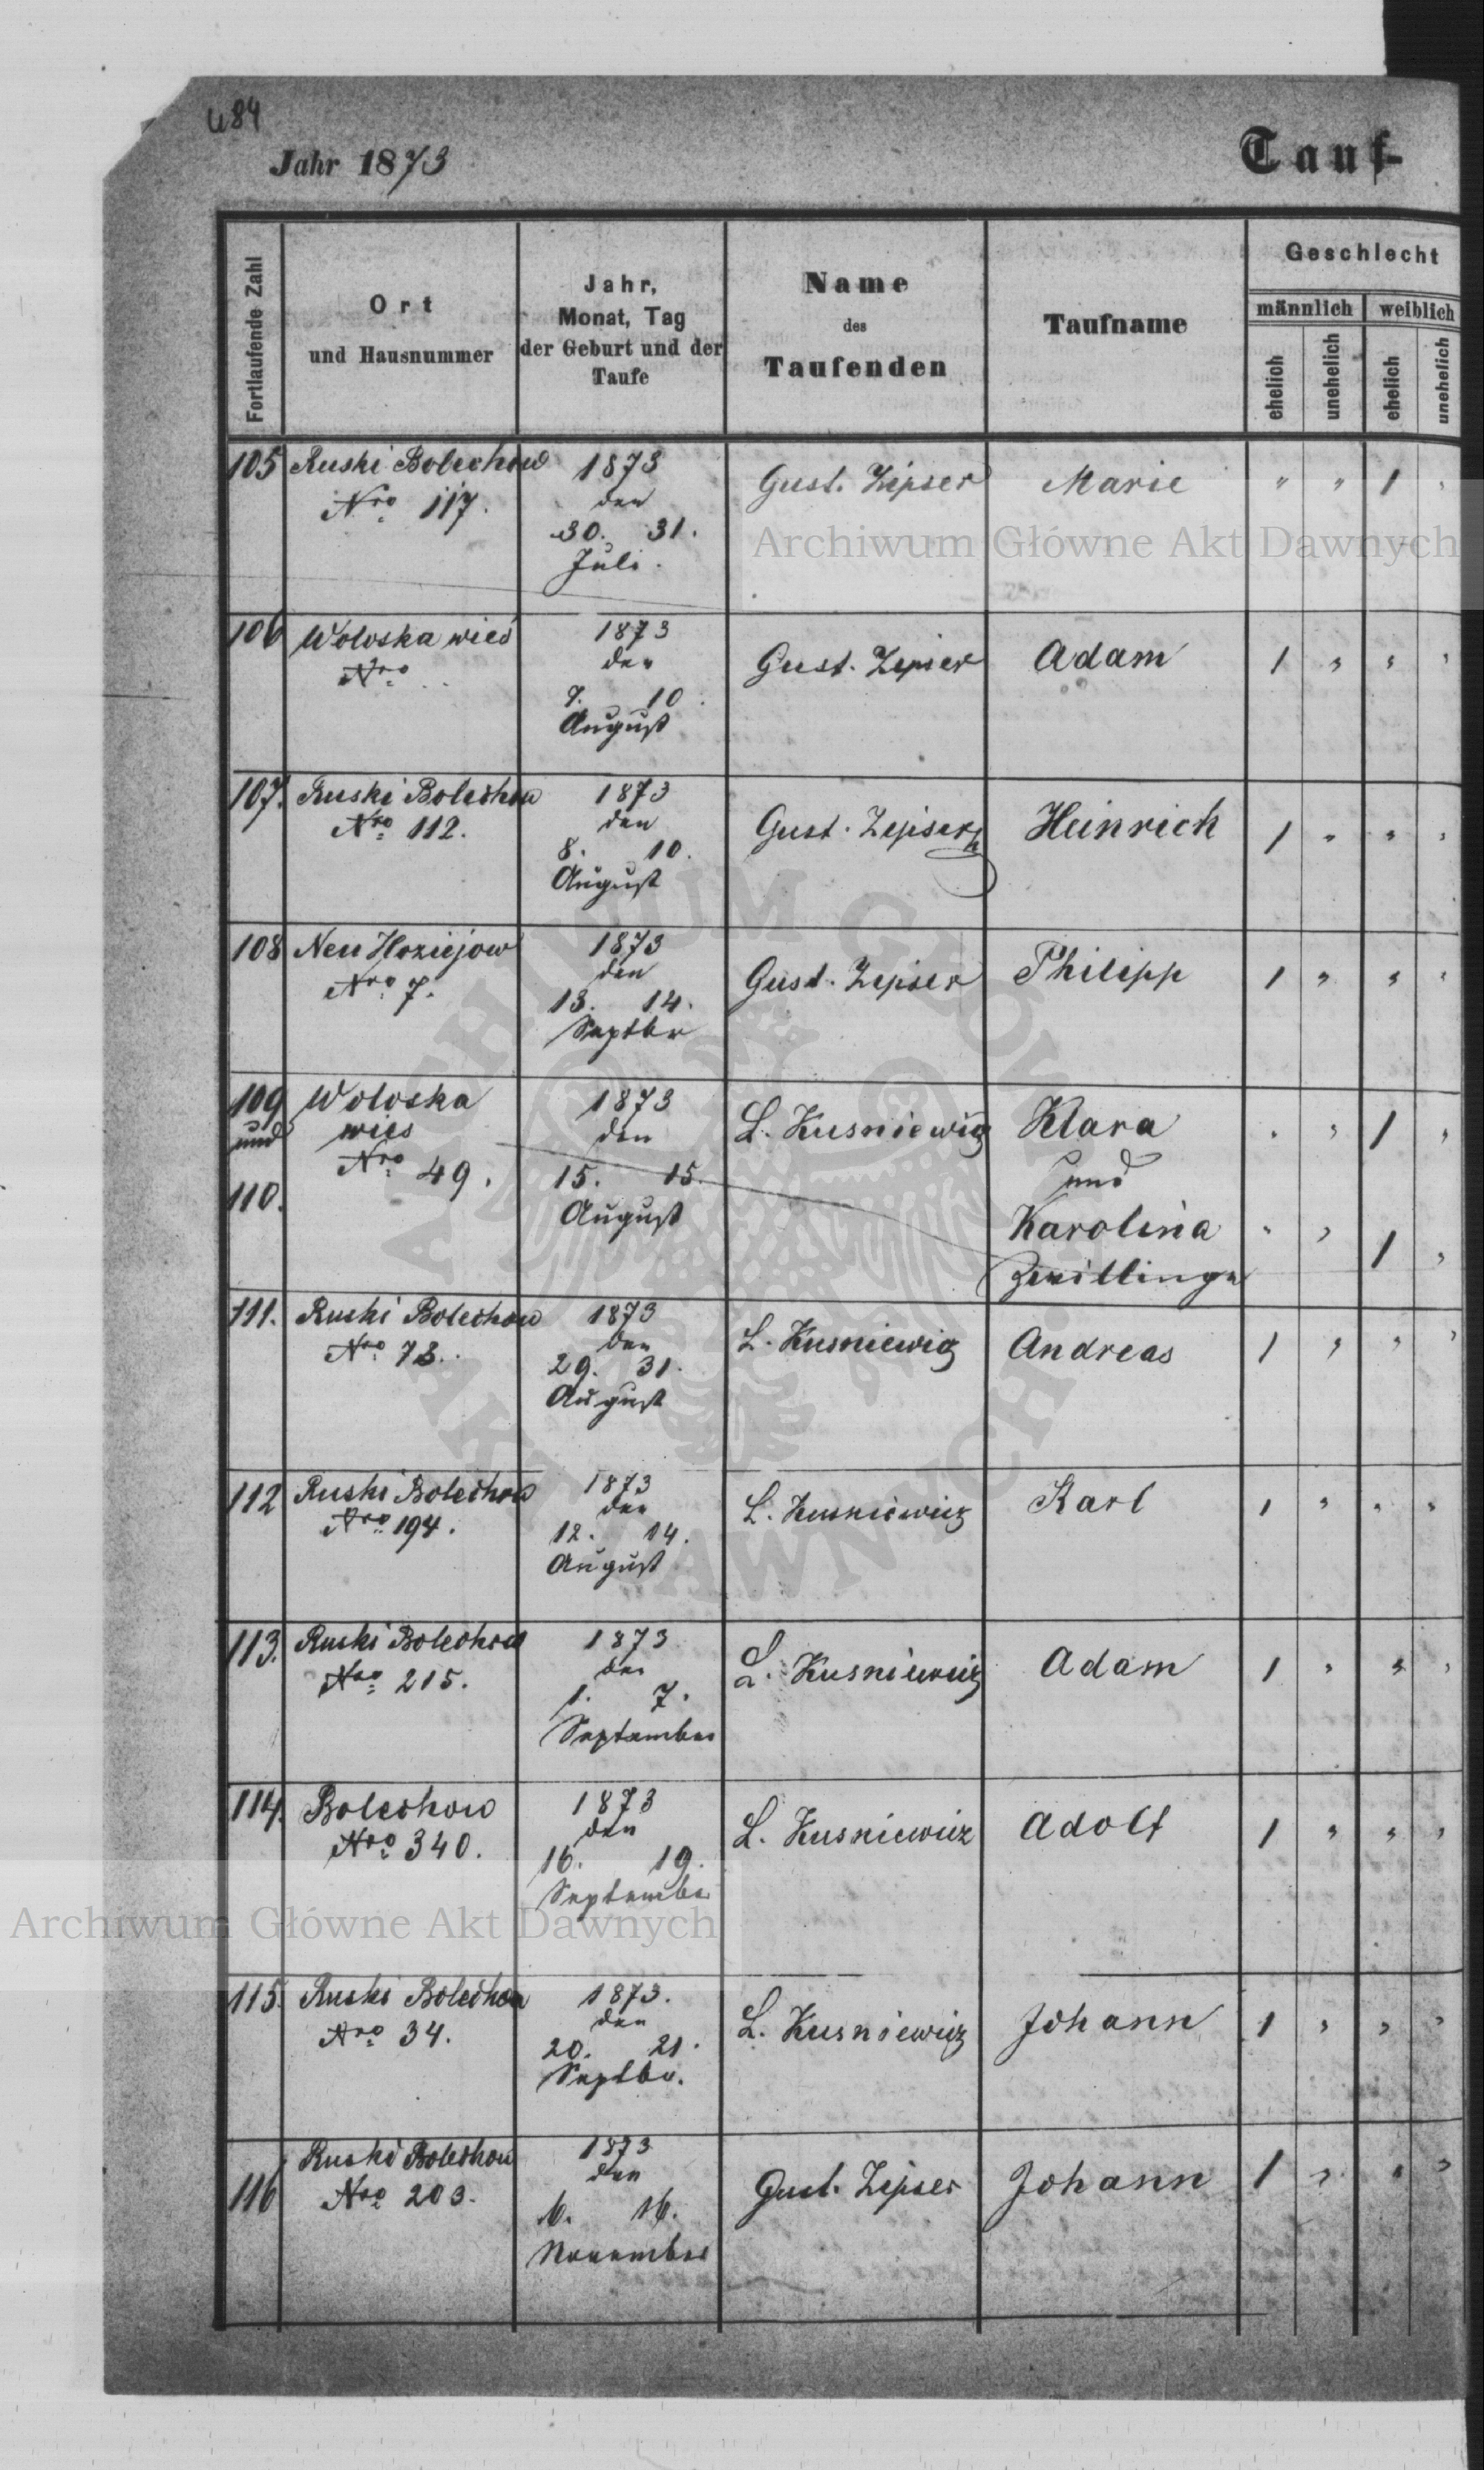 484
Jahr 1873
Tauf-
Fortlaufende Zahl
Ort
und Hausnummer
Jahr,
Monat, Tag
der Geburt und der
Taufe
Name
des
Taufenden
Taufname
Geschlecht
männlich
weiblich
ehelich
unehelich
ehelich
unehelich
105 Ruski Bolechow 1873 Gust. Zipser Marie " " 1 "
Nro 117. den
30. 31.
Juli.
Archiwum Główne Akt Dawnych
106 Woloska wieś 1873 Gust. Zipser Adam 1 " " "
Nro den
7. 10.
August
107. Ruski Bolechow 1873 Gust. Zipser Heinrich 1 " " "
Nro 112. den
8. 10.
August
108 Neu Hoziejow 1873 Gust. Zipser Philipp 1 " " "
Nro 7. den
13. 14.
Septbr
109 Woloska 1873 L. Kusniewicz Klara " " 1 "
und wies den und
Nro 49. 15. 15.
110. August Karolina " " 1 "
Zwillinge
111. Ruski Bolechow 1873 L. Kusniewicz Andreas 1 " " "
Nro 73. den
29. 31.
August
112 Ruski Bolechow 1873 L. Kusniewicz Karl 1 " " "
Nro 194. den
12. 14.
August
113. Ruski Bolechow 1873 L. Kusniewicz Adam 1 " " "
Nro 215. den
1. 7.
September
114. Bolechow 1873 L. Kusniewicz Adolf 1 " " "
Nro 340. den
16. 19.
September
Archiwum Główne Akt Dawnych
115. Ruski Bolechow 1873. L. Kusniewicz Johann 1 " " "
Nro 34. den
20. 21.
Septbr.
116 Ruski Bolechow 1873 Gust. Zipser Johann 1 " " "
Nro 203. den
6. 16.
November
ARCHIWUM GŁÓWNE AKT DAWNYCH